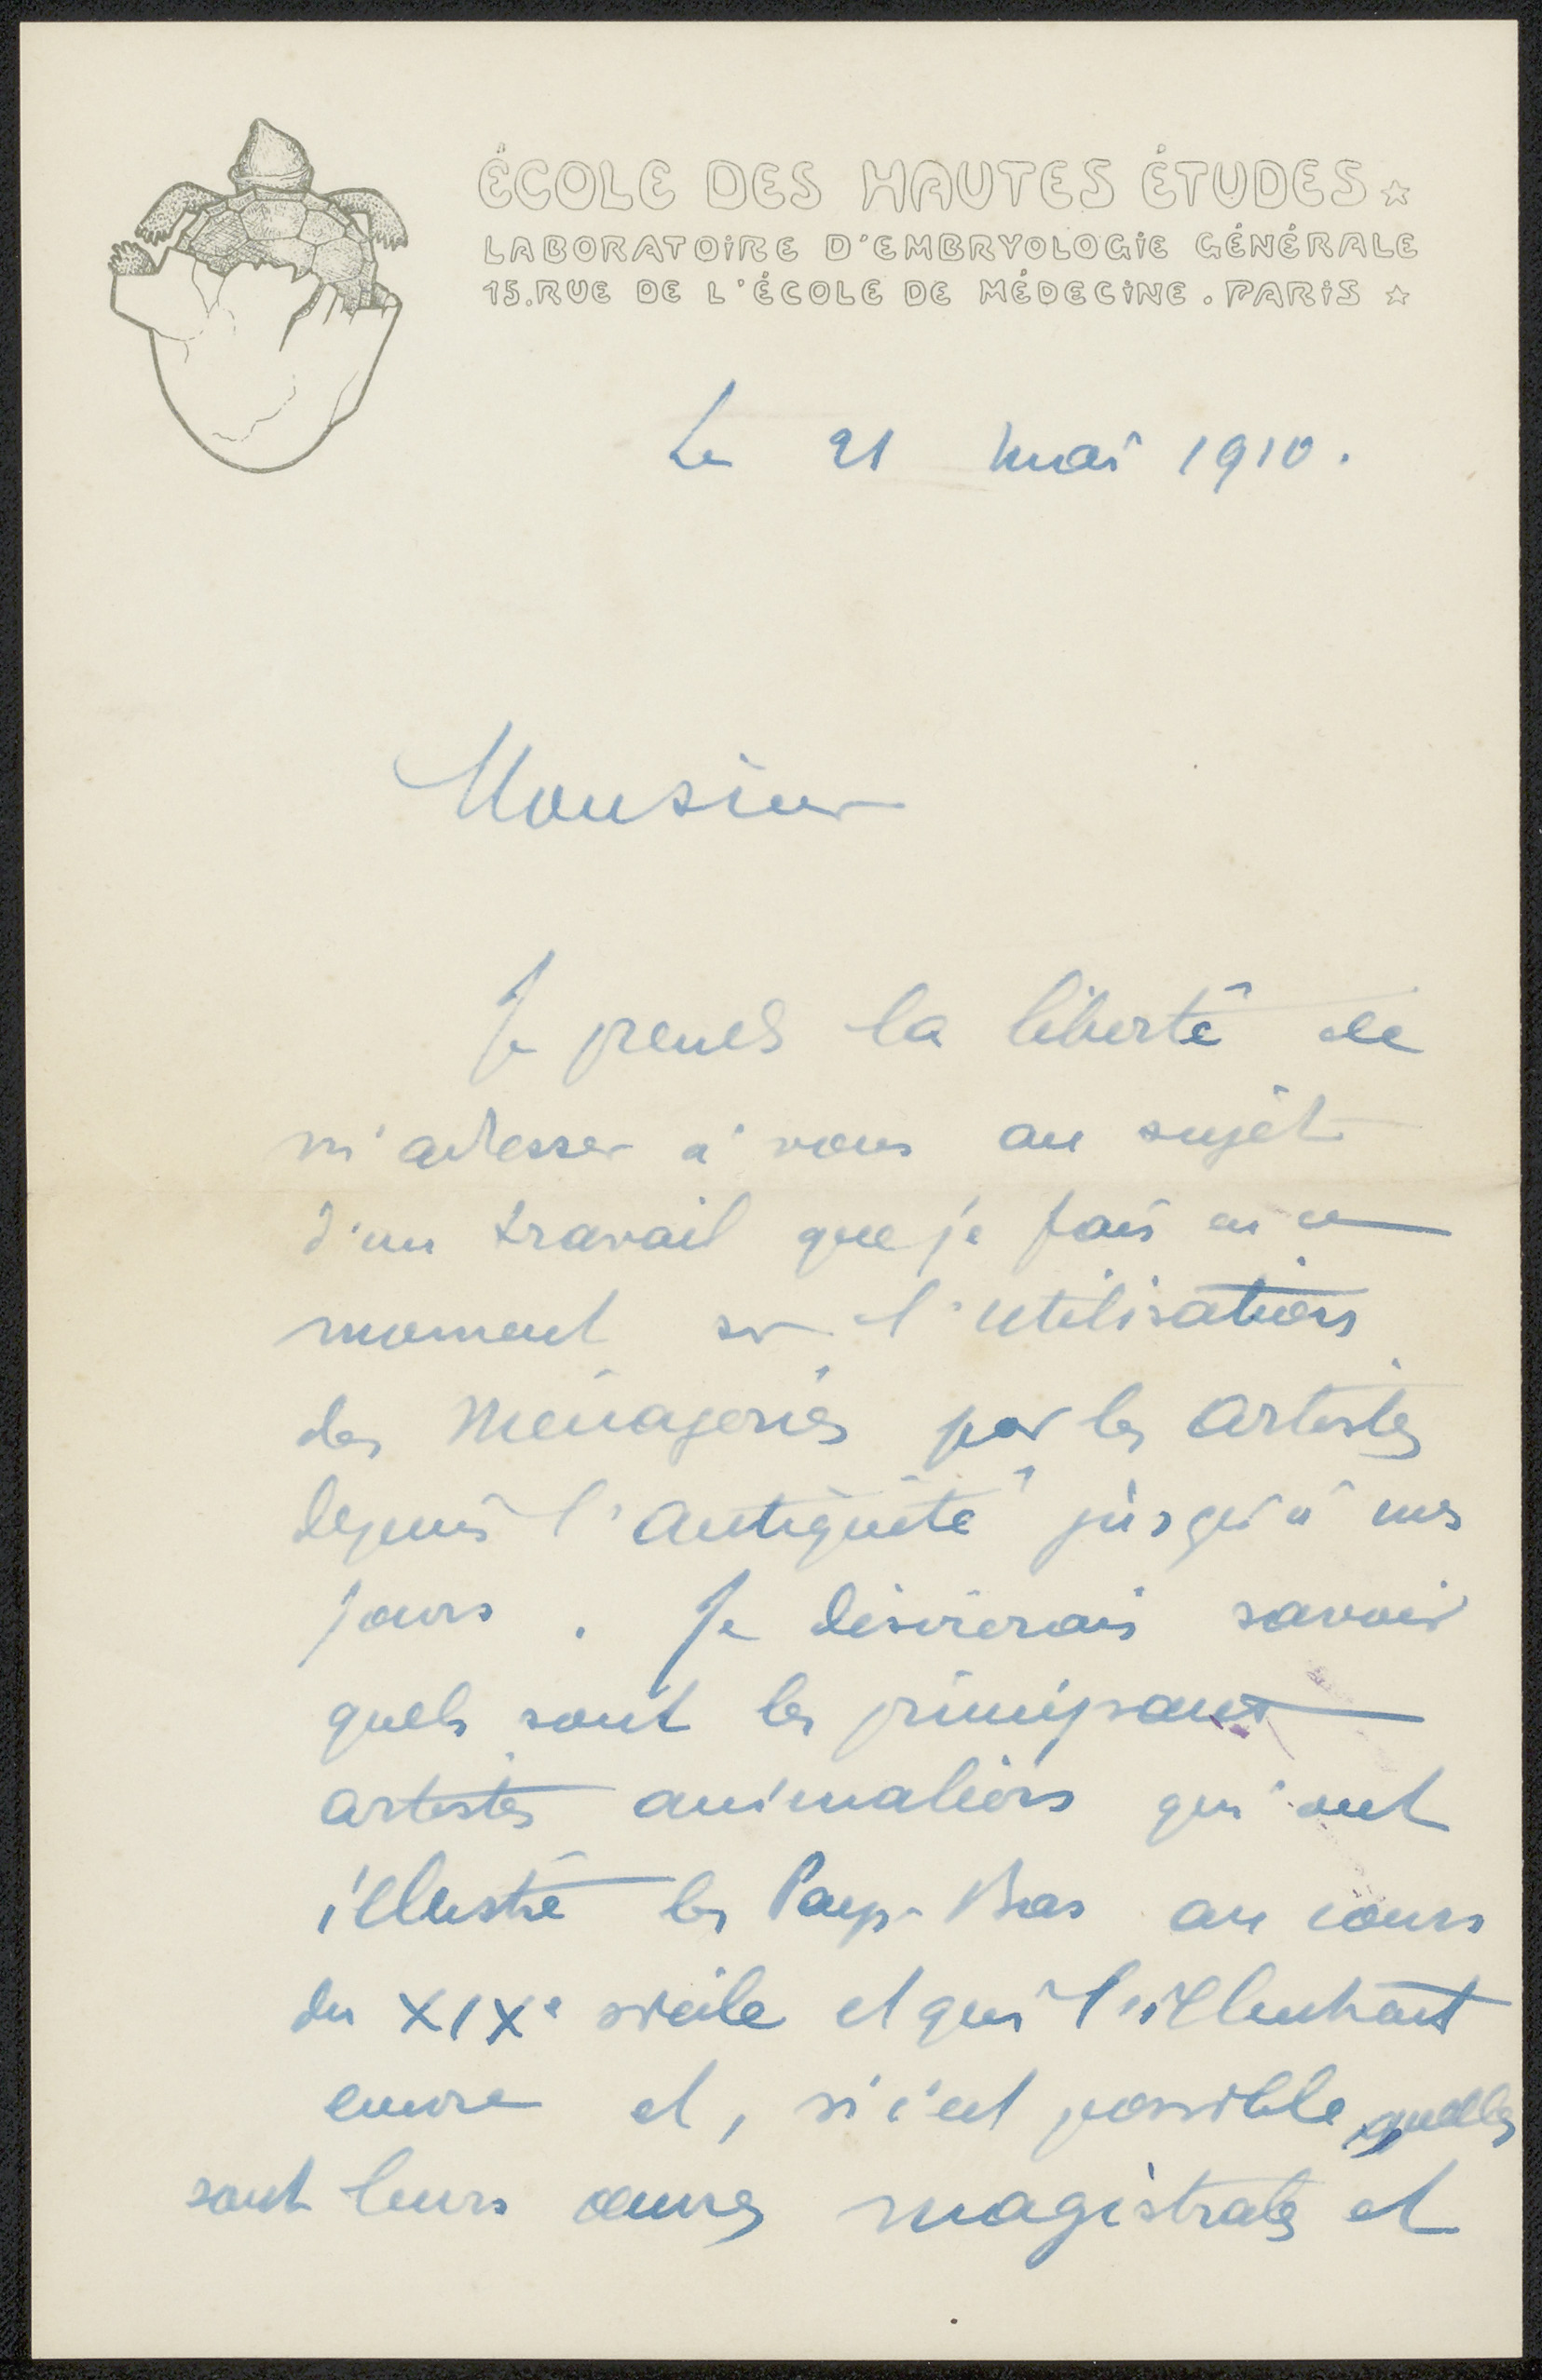 ÉCOLE DES HAUTES ÉTUDES
LABORATOIRE D'EMBRYOLOGIE GÉNÉRALE
15. RUE DE L'ÉCOLE DE MÉDECINE. PARIS
Le 21 mai 1910.
Monsieur
Je prends la liberté de
m'adresser à vous au sujet
d'un travail que je fais en ce
moment sur l'utilisation
des Ménageries par les artistes
depuis l'antiquité jusqu'à nos
jours. Je désirerais savoir
quels sont les principaux
artistes animaliers qui ont
illustré les Pays-Bas au cours
du XIXe siècle et qui l'illustrent
encore et, si c'est possible, quelles
sont leurs œuvres magistrales et